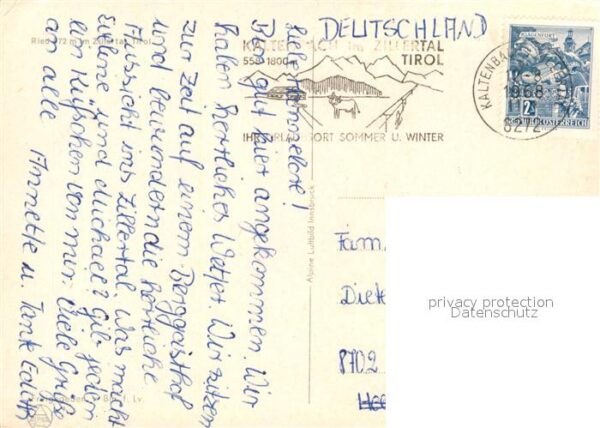 DEUTSCHLAND
Ried 572 m im Zillertal, Tirol
KALTENBACH IM ZILLERTAL
558-1800 m TIROL
IHR URLAUBSORT SOMMER U. WINTER
1968
6272
2 S
REPUBLIK ÖSTERREICH
Liebe Hannelore!
Bin gut hier angekommen. Wir
haben herrliches Wetter. Wir sitzen
zur Zeit auf einem Berggasthof
und bewundern die herrliche
Aussicht ins Zillertal. Was macht
und Michael? Gib jedem
ein Küßchen von mir. Viele Grüße
an alle
Annette u. Tante Edith
Alpine Luftbild Innsbruck
Fam.
Diete
8702
privacy protection
Datenschutz